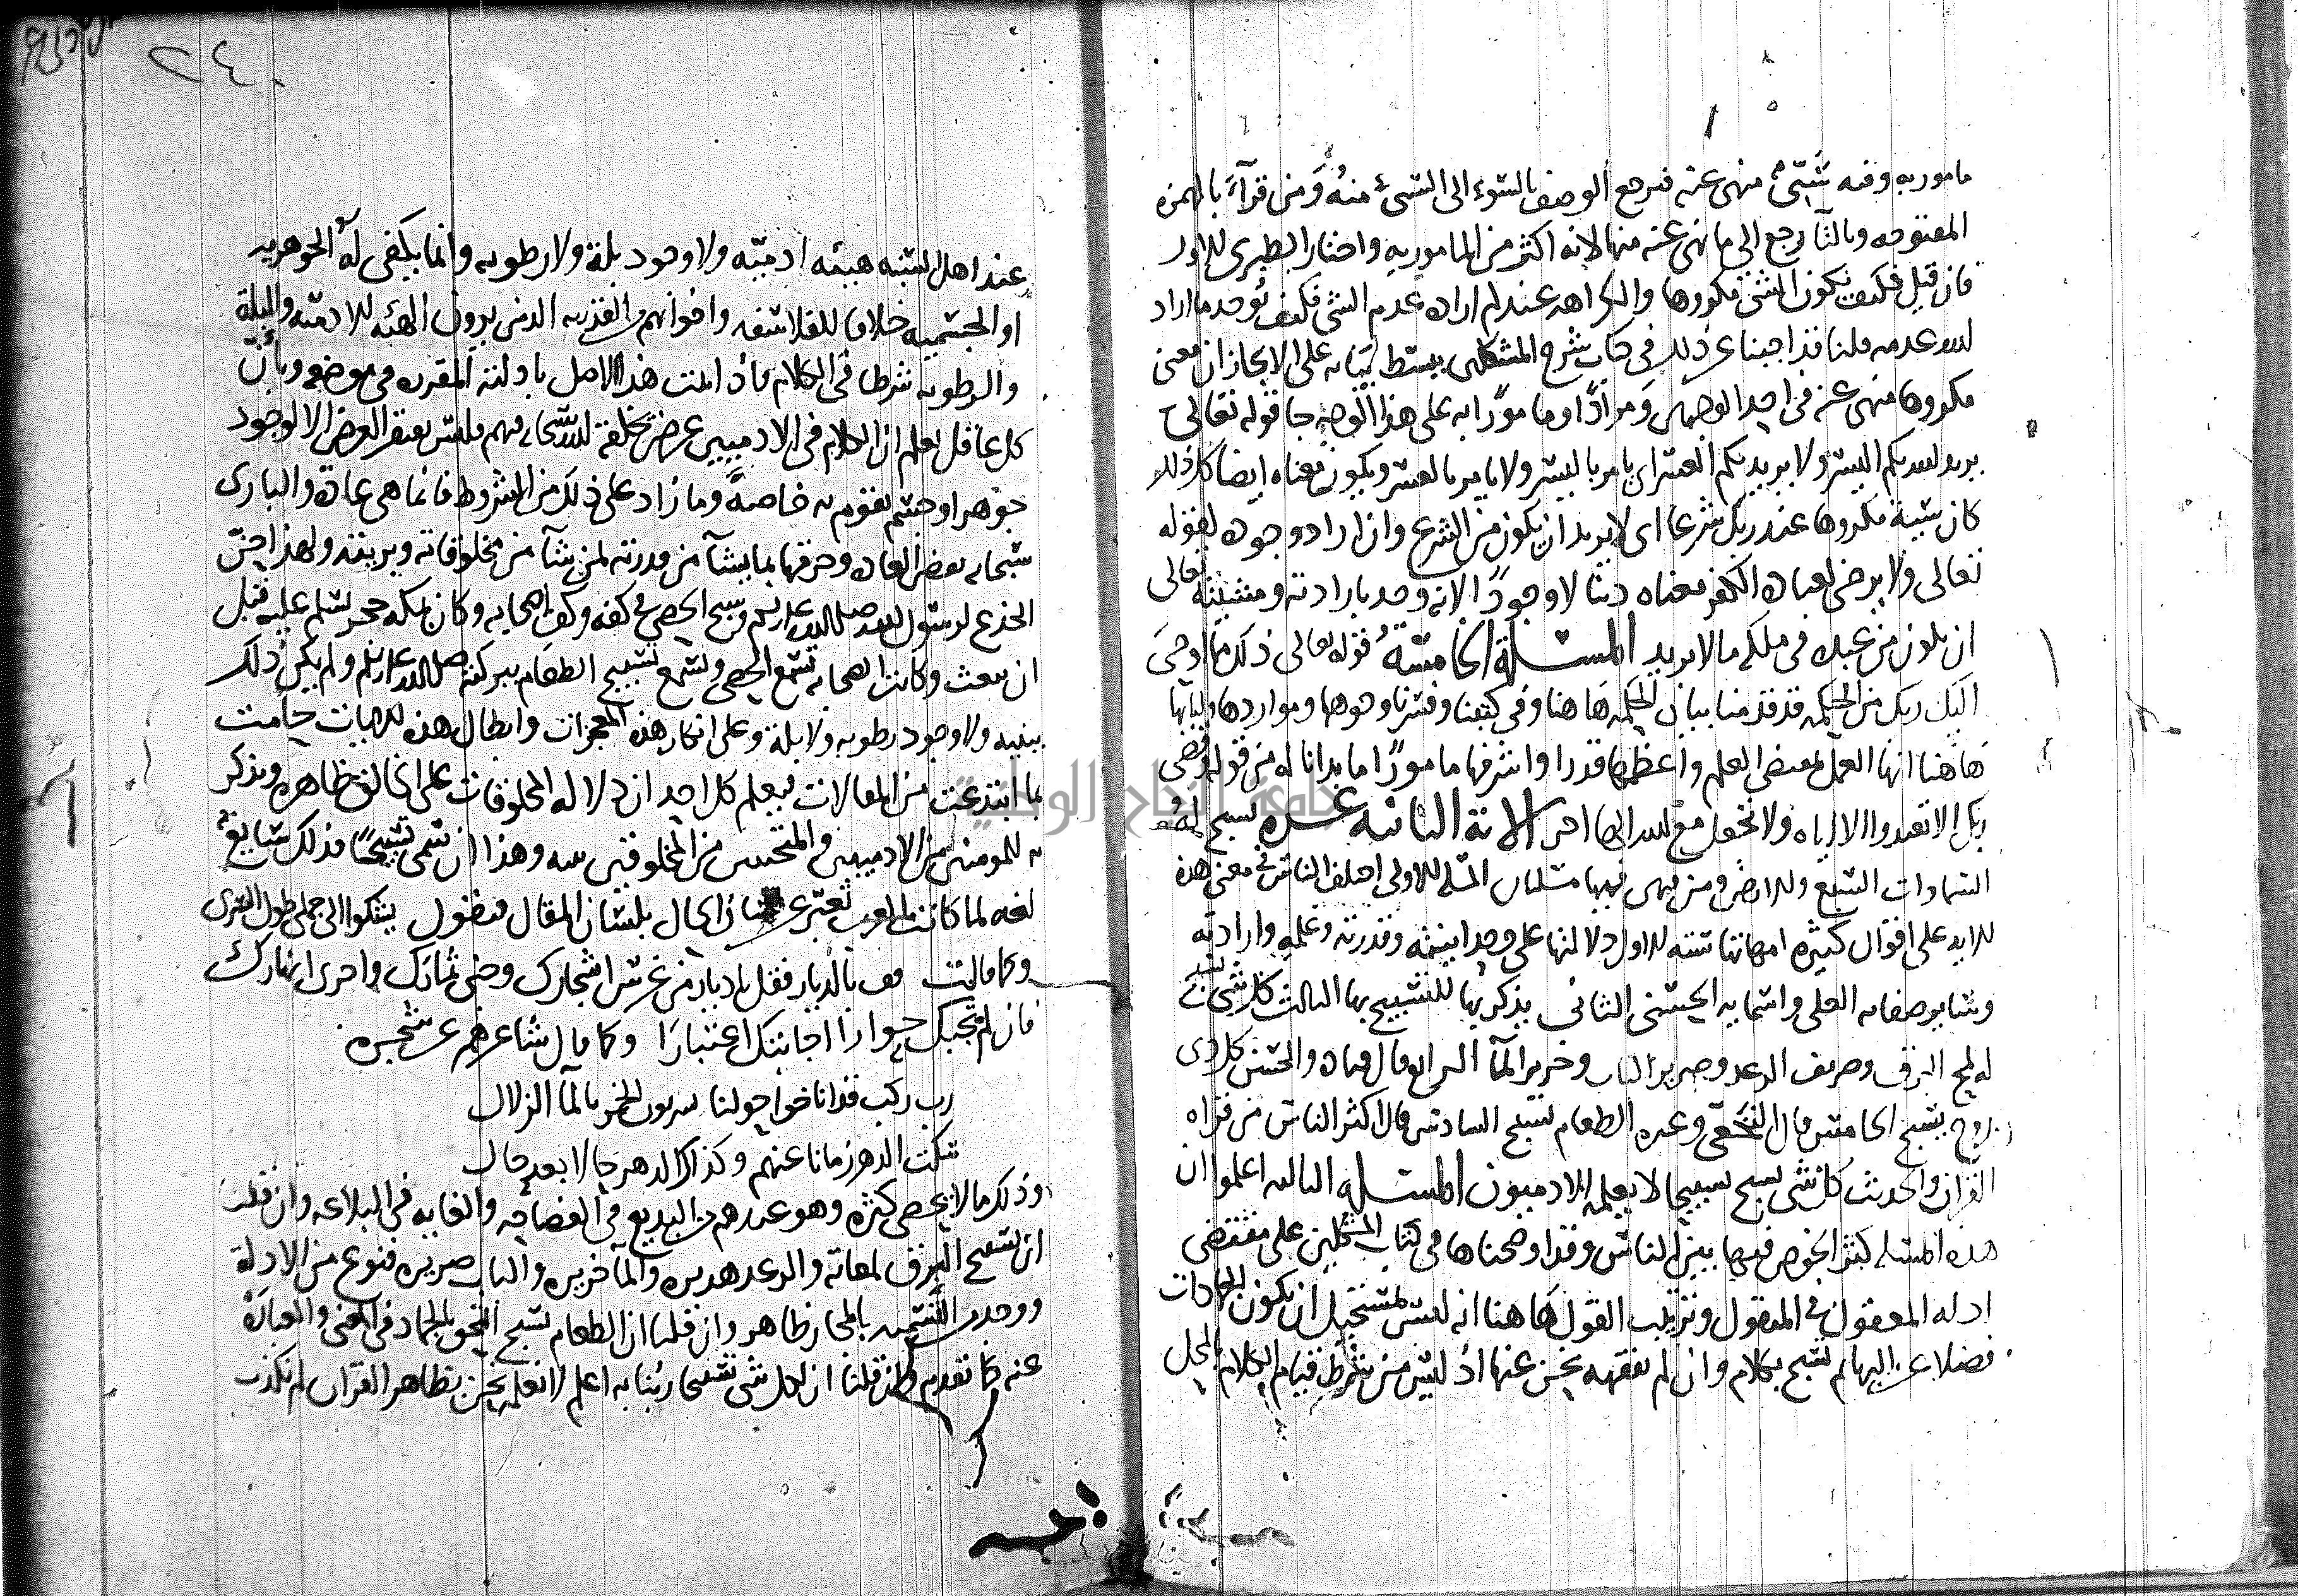 مامور به وفيه شيء منهى عنه فيرجع الوصف بالسوء الى الشيء منه ومن قرآه بالهمزة
المفتوحة وبالتا رجع الى ما نهى عنه منها لانه اكثر من المامور به واختار الطبرى الاول
فان قيل فكيف يكون الشى مكروها والكراهه عندكم اراده عدم الشى فكيف يوجد ما اراد
الله عدمه قلنا قد اجبنا عن ذلك فى كتاب شرح المشكلين ببسط بيانه على الايجاز ان معنى
مكروها منهى عنه فى احد الوجهين ومرادًا ومامورًا به على هذا الوجه جا قوله تعالى
يريد الله بكم اليسر ولا يريد بكم العسر اى يامر باليسر ولا يامر بالعسر ويكون معناه ايضا كل ذلك
كان سيئة مكروها عند ربك شرعا اى لا يريد ان يكون من الشرع وان اراد وجوده لقوله
تعالى ولا يرضى لعباده الكفر معناه دينا لا وجودًا لانه وجد بارادته ومشيئته تعالى
ان يكون من عبيده فى ملكه ما لا يريد المسئلة الخامسة قوله تعالى ذلك مما اوحى
اليك ربك من الحكمه قد قدمنا بيان الحكمه هاهنا وفى كتبنا وفسرنا وجوهها ومواردها ولبابها
هاهنا انها العمل بمقتضى العلم واعظمها قدرا واشرفها مامورًا ما بدانا به من قوله وقضى
ربك الا تعبدوا الا اياه ولا تجعل مع الله الها اخر الاية الثانية عشره تسبح له
السماوات السبع والارض ومن فيهن فيها مسئلتان المسئله الاولى اختلف الناس فى معنى هذه
الايه على اقوال كثيره امهاتها سته الاول دلالتها على وحدانيته وقدرته وعلمه وارادته
وسايو صفاته العلى واسمايه الحسنى الثانى يذكر بها للتسبيح بها الثالث كل شى يسبح
له لمح البرق وصريف الرعد وصرير الباب وخرير المآ الرابع قال قتاده والحسن كل ذى
روح يسبح الخامس قال النخعى وغيره الطعام يسبح السادس قال اكثر الناس من قراه
القران والحديث كل شى يسبح تسبيحا لا يعلمه الادميون المسئله الثالثه اعلموا ان
هذه المسئله كثر الخوض فيها بين الناس وقد اوضحناها فى كتاب المشكلين على مقتضى
ادله المعقول فى المنقول وترتيب القول هاهنا انه ليس بمستحيل ان يكون للجمادات
فضلا عن البهايم تسبيح بكلام وان لم نفقهه نحن عنها اذ ليس من شرط قيام الكلام بالمحل
عند اهل السنه هيئه ادميّه ولا وجود بلة ولا رطوبه وانما يكفى له الجوهريه
او الجسميه خلافا للفلاسفه واخوانهم من القدريه الذين يرون الهيئه الادميّه والبلة
والرطوبه شرطا فى الكلام فاذا ثبت هذا الاصل بادلته المقرره فى موضعه وبان
كل عاقل يعلم ان الكلام فى الادميين عرض يخلقه الله سبحانه فيهم فليس يفتقر العرض الا لوجود
جوهر او جسم يقوم به خاصة وما زاد على ذلك من الشروط فانما هى عادة والبارى
سبحانه يعض العاده وخرقها بما يشآ من قدرته لمن يشآ من مخلوقاته وبريته ولهذا حنّ
الجذع لرسول الله صلى الله عليه وسلم وسبح الحصى فى كفه وكف اصحابه وكان بمكه حجر يسلم عليه قبل
ان يبعث وكانت الصحابه تسمع الحصى وتسمع تسبيح الطعام ببركته صلى الله عليه وسلم ولم يكن ذلك
ببنيه ولا وجود رطوبه ولا بلة وعلى انكار هذه المعجزات وابطال هذه الايات حامت
بما ابتدعت من المقالات فيعلم كل احد ان دلاله المخلوقات على الخالق ظاهره ويذكر
به للمومنين من الادميين والمتحسس من المخلوقين سه وهذا ان سمى تسبيحًا فذلك شايع
لغه لما كانت العرب تعبر عن لسان الحال بلسان المقال فيقول يشكوا الى جملى طول السرى
وكما قالت قف بالديار فقل يا ديار من غرس اشجارك وجنى ثمارك واجرى انهارك
فان لم تجبك جوارا اجابتك اعتبارا وكما قال شاعرهم عن شجره
رب ركب قد اناخوا حولنا يشربون الخمر بالمآ الزلال
سكت الدهر زمانا عنهم وكذاك الدهر حالا بعد حال
وذلك مما لا يحصى كثرة وهو عندهم من البديع فى الفصاحه والغايه فى البلاغه وان قلت
ان تسبيح البرق لمعانه والرعد هديره والمآ خريره والباب صريره فنوع من الادلة
ووجه من التسميه بالمجاز ظاهر وان قلنا ان الطعام يسبح التحق بالجماد فى المعنى والعبارة
عنه كما تقدم وان قلنا ان لكل شى تسبيحا ربنا به اعلم لا نعلمه نحن بظاهر القران لم نكذب